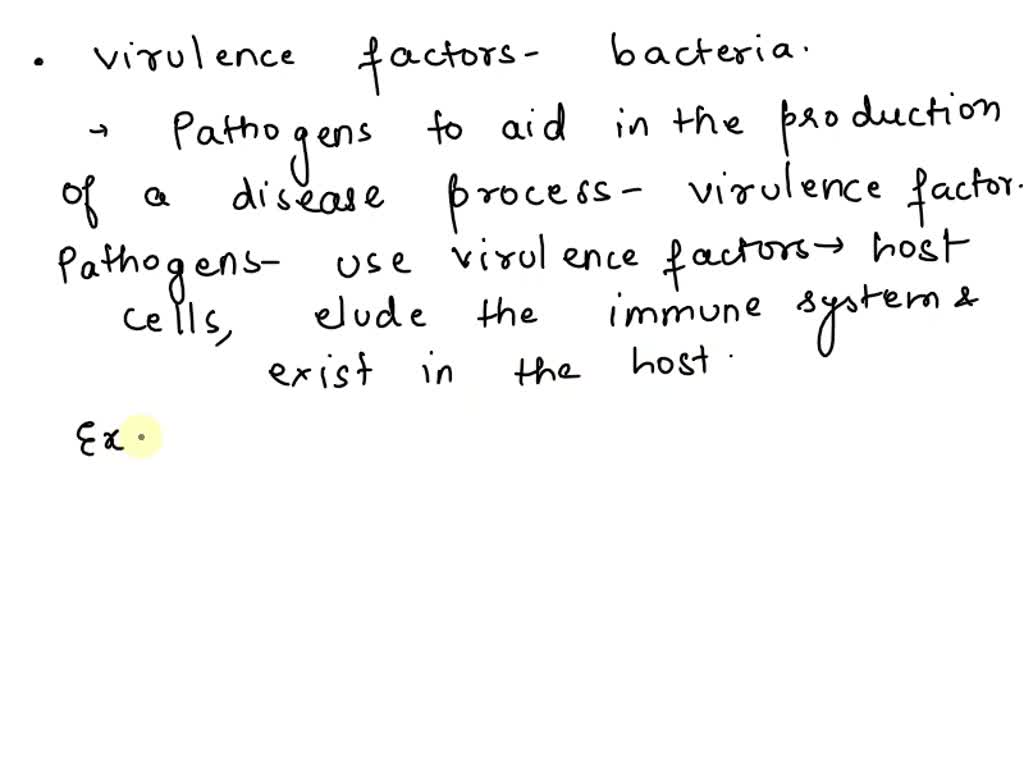 • virulence factors- bacteria.
→ Pathogens to aid in the production
of a disease process- virulence factor.
Pathogens- use virulence factors→ host
cells, elude the immune system &
exist in the host.
Ex